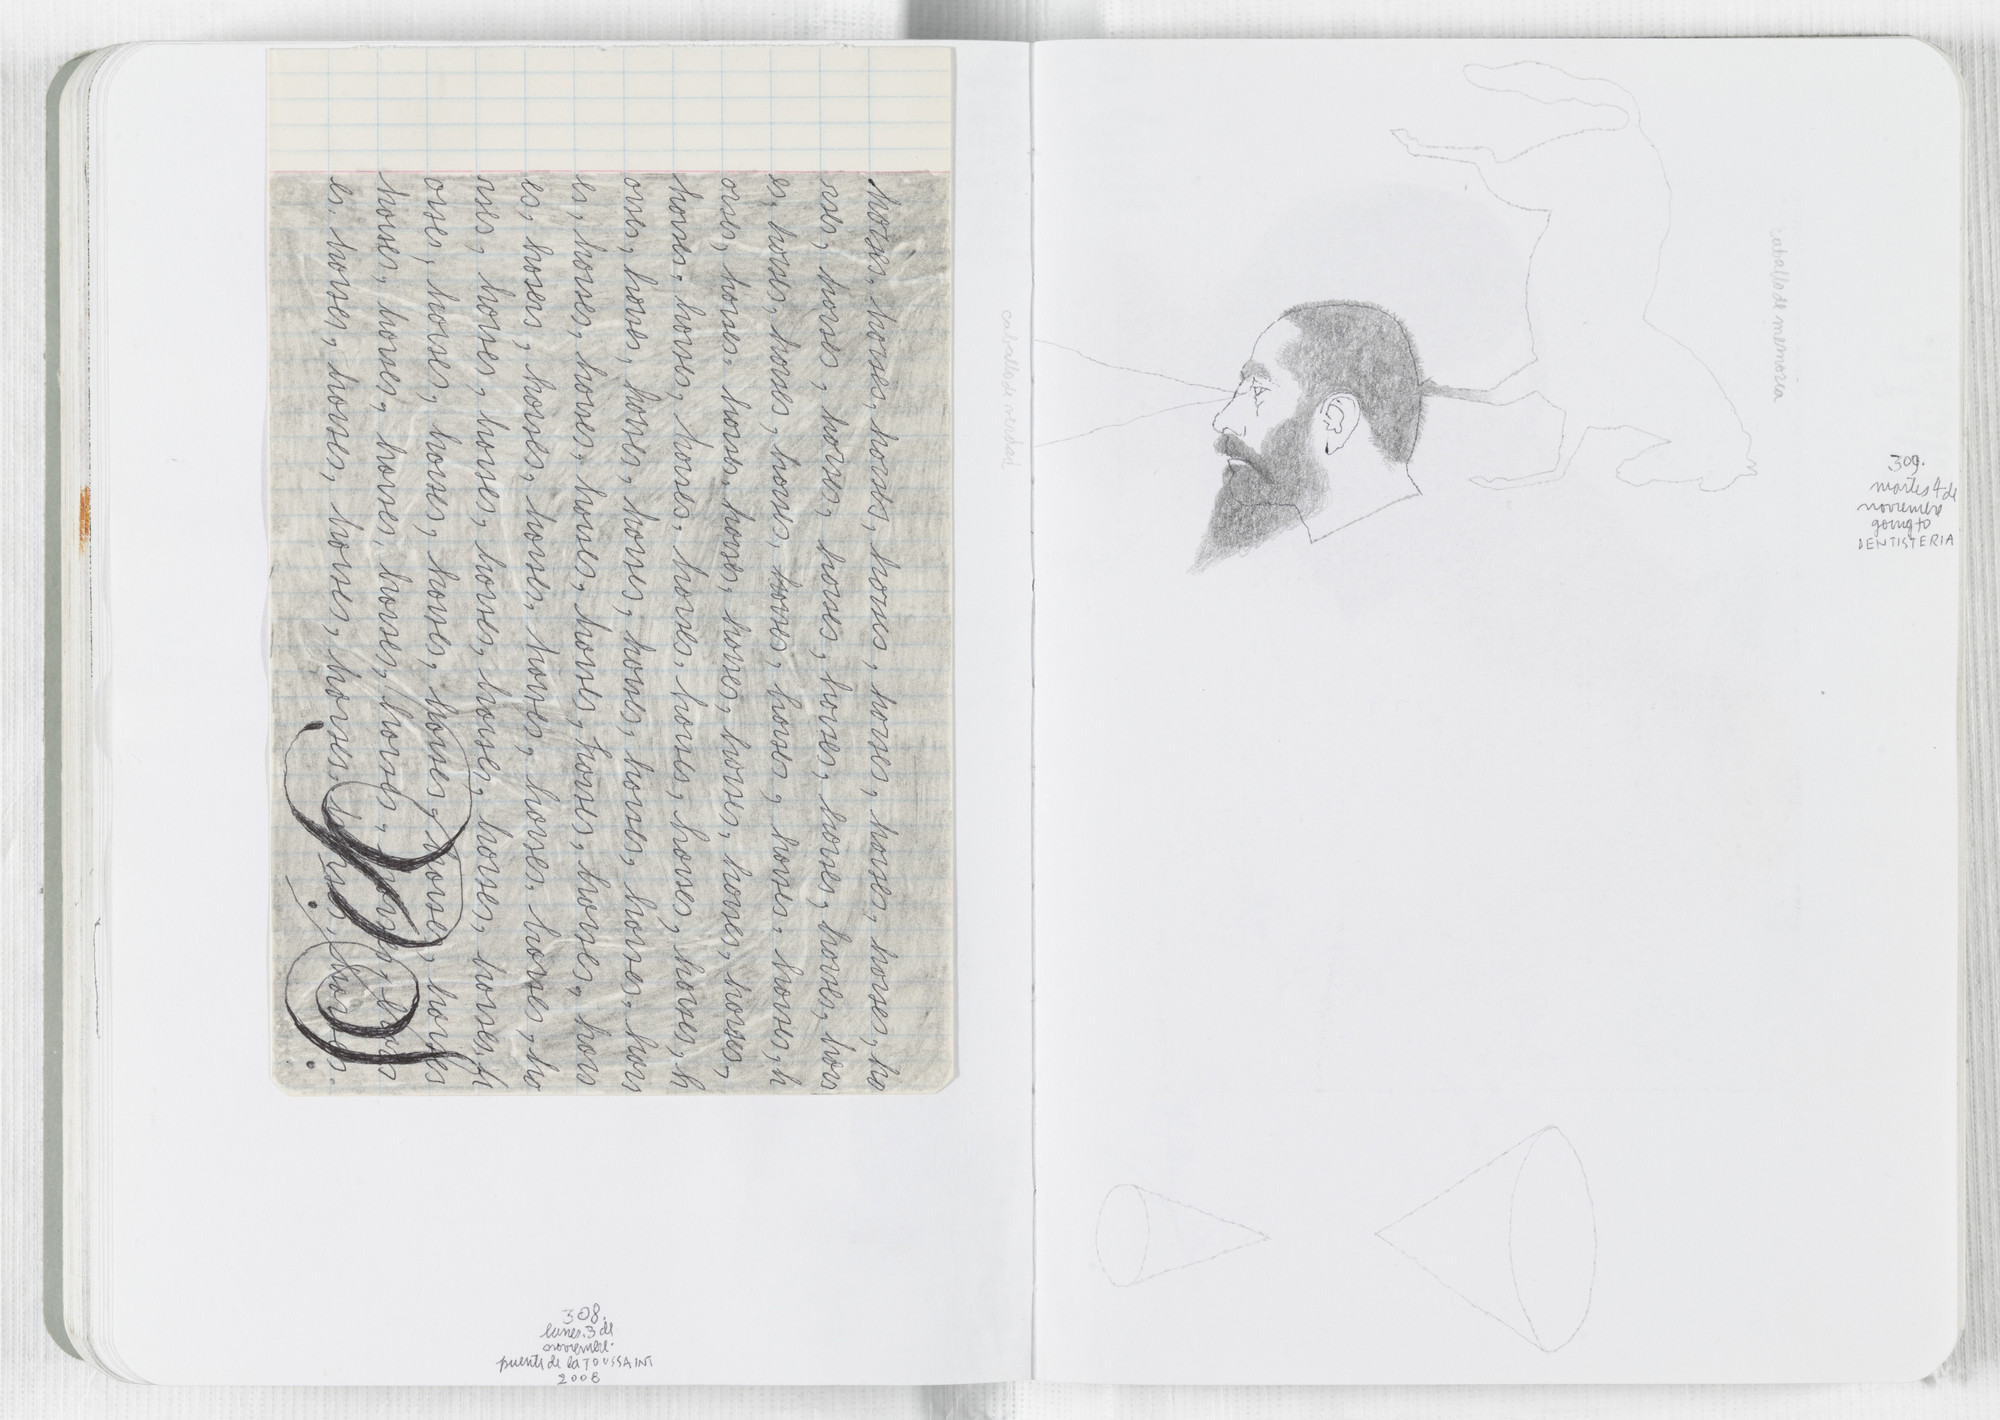 horses, horses, horses, horses, horses, horses, horses, ho
rses, horses, horses, horses, horses, horses, horses, hors
es, horses, horses, horses, horses, horses, horses, horses, h
orses, horses. horses, horses, horses, horses, horses, horses,
horses, horses, horses, horses, horses, horses, horses, h
orses, horses, horses, horses, horses, horses, horses. hors
es, horses, horses, horses, horses, horses, horses, hors
es, hoses, horses, horses, horses, horses. horses, ho
rses, horses, horses, horses, horses, horses, horses, h
orses, horses, horses, horses, horses, horse, horses
horses, horses, horses, horses, horses, hors
es. horses, horses, horses, horses, horses, horses.
caballo de verdad
308.
lunes. 3 de
noviembre.
puente de la TOUSSAINT
2008
caballo de memoria
309.
martes 4 de
noviembre
going to
DENTISTERIA